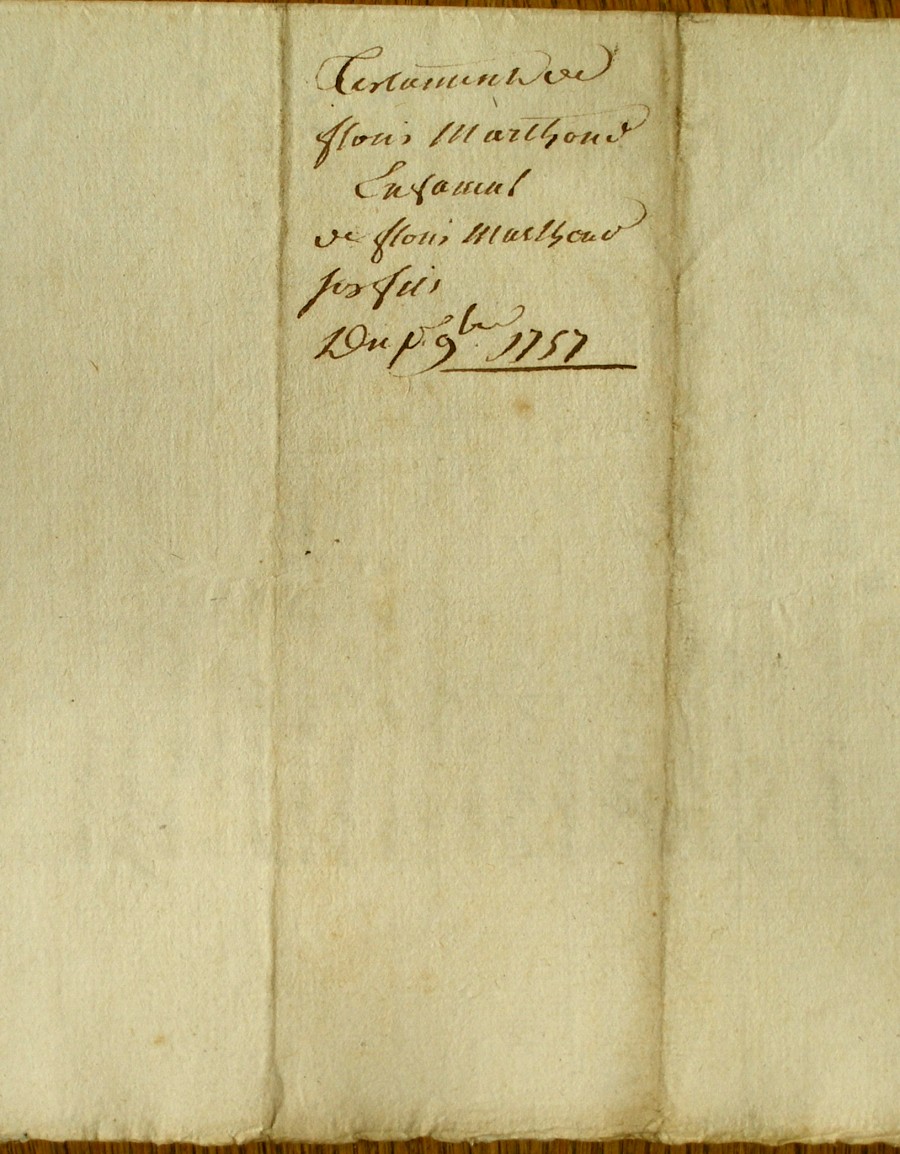 Testament de
floris Marthoud
En faveur
de floris Marthoud
son fils
Du pr 9bre 1757